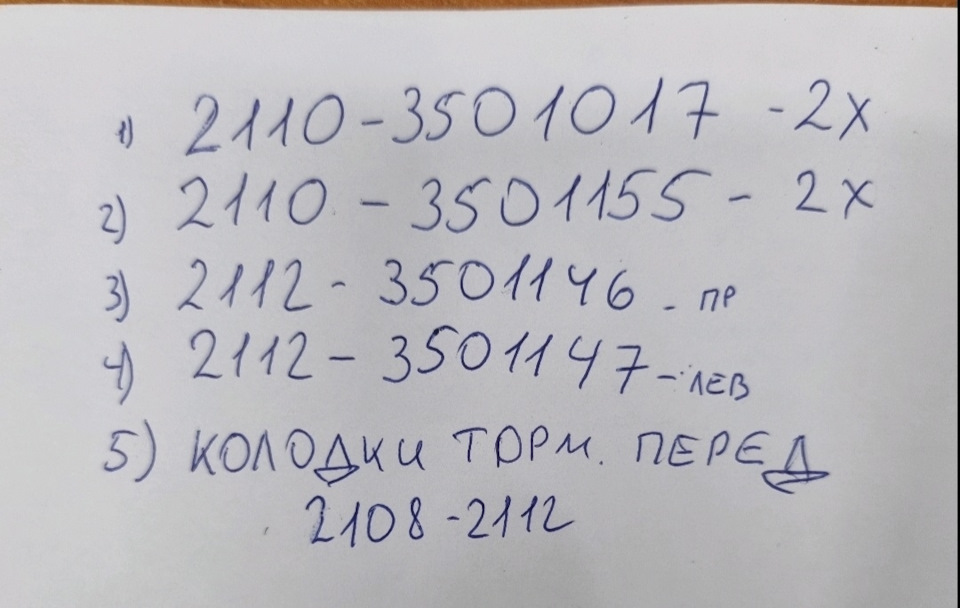 1) 2110-3501017 - 2х
2) 2110 - 3501155 - 2х
3) 2112 - 3501146 - ПР
4) 2112 - 3501147 - ЛЕВ
5) КОЛОДКИ ТОРМ. ПЕРЕД
2108-2112